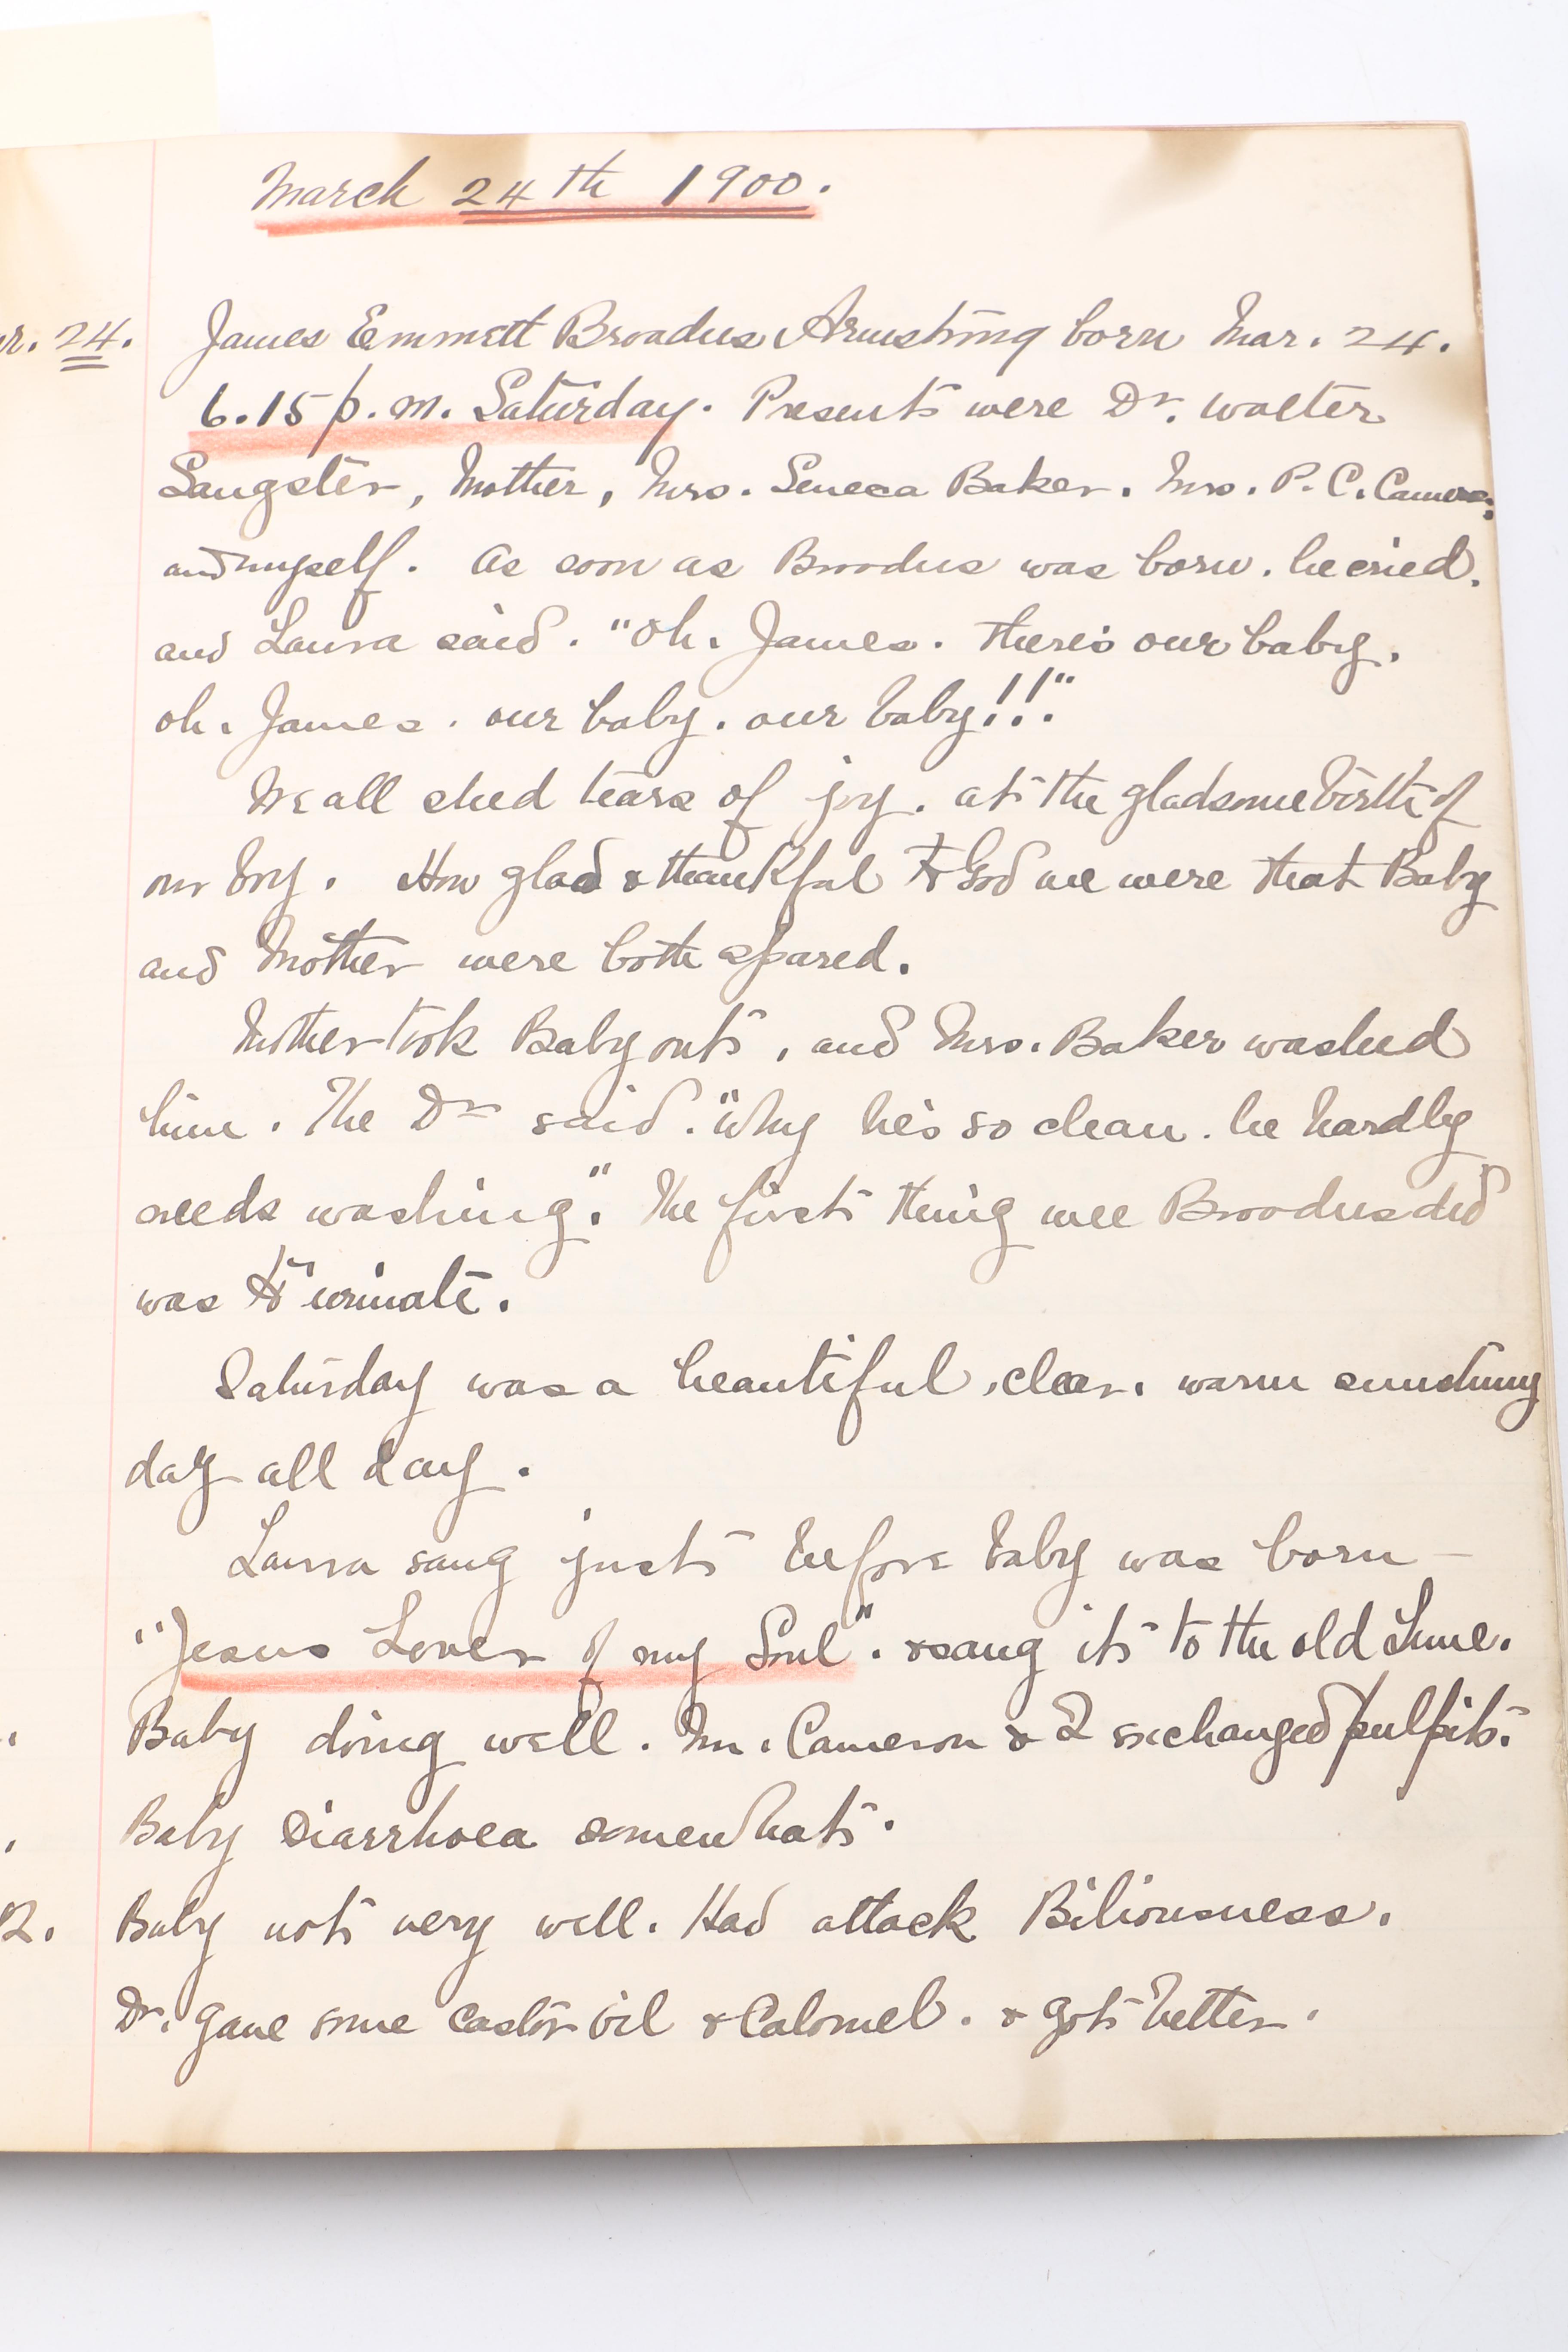 March 24th 1900.
r. 24. James Emmett Broadus Armstrong born Mar. 24.
6.15 p.m. Saturday. Present were Dr. Walter
Sangster, Mother, Mrs. Seneca Baker. Mrs. P. C. Cameron
and myself. As soon as Broadus was born. he cried.
and Laura said. "Oh. James. there's our baby.
oh. James. our baby. our baby!!!"
We all shed tears of joy. at the gladsome birth of
our boy. How glad & thankful to God we were that Baby
and Mother were both spared.
Mother took Baby out, and Mrs. Baker washed
him. The Dr said. "Why he's so clean. he hardly
needs washing". The first thing wee Broadus did
was to urinate.
Saturday was a beautiful, clear. warm sunshiny
day all day.
Laura sang just before baby was born –
"Jesus Lover of my Soul". & sang it to the old tune.
Baby doing well. Mr. Cameron & I exchanged pulpits.
Baby diarrhoea somewhat.
2. Baby not very well. Had attack Biliousness.
Dr. gave some castor oil & Calomel. & got better.